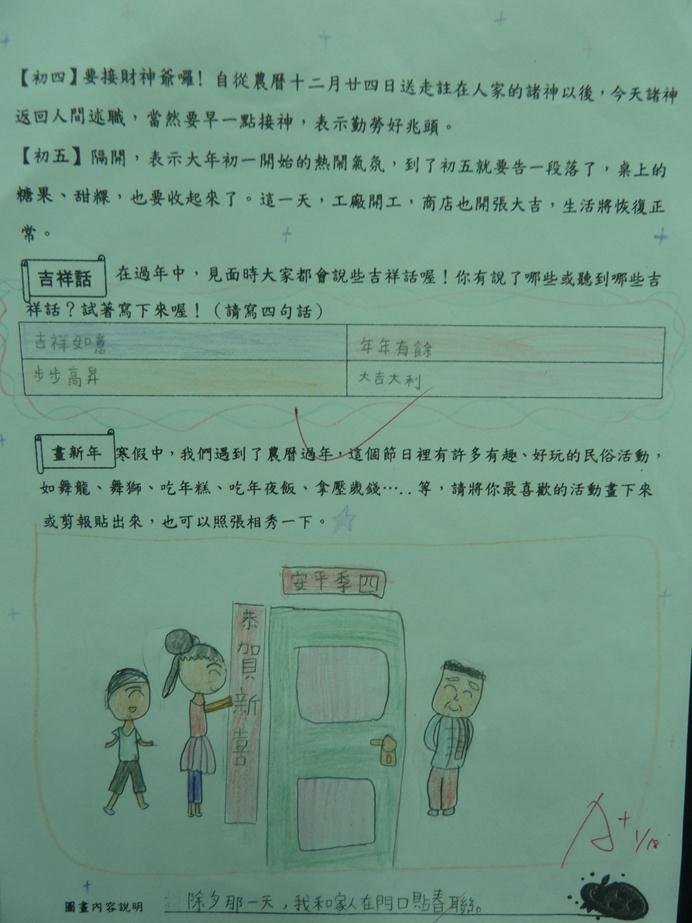 【初四】要接財神爺囉！自從農曆十二月廿四日送走註在人家的諸神以後，今天諸神
返回人間述職，當然要早一點接神，表示勤勞好兆頭。
【初五】隔開，表示大年初一開始的熱鬧氣氛，到了初五就要告一段落了，桌上的
糖果、甜粿，也要收起來了。這一天，工廠開工，商店也開張大吉，生活將恢復正
常。
吉祥話 在過年中，見面時大家都會說些吉祥話喔！你有說了哪些或聽到哪些吉
祥話？試著寫下來喔！（請寫四句話）
吉祥如意 年年有餘
步步高昇 大吉大利
畫新年 寒假中，我們遇到了農曆過年，這個節日裡有許多有趣、好玩的民俗活動，
如舞龍、舞獅、吃年糕、吃年夜飯、拿壓歲錢…..等，請將你最喜歡的活動畫下來
或剪報貼出來，也可以照張相秀一下。
安平季四
恭賀新喜
A+
圖畫內容說明 除夕那一天，我和家人在門口貼春聯。